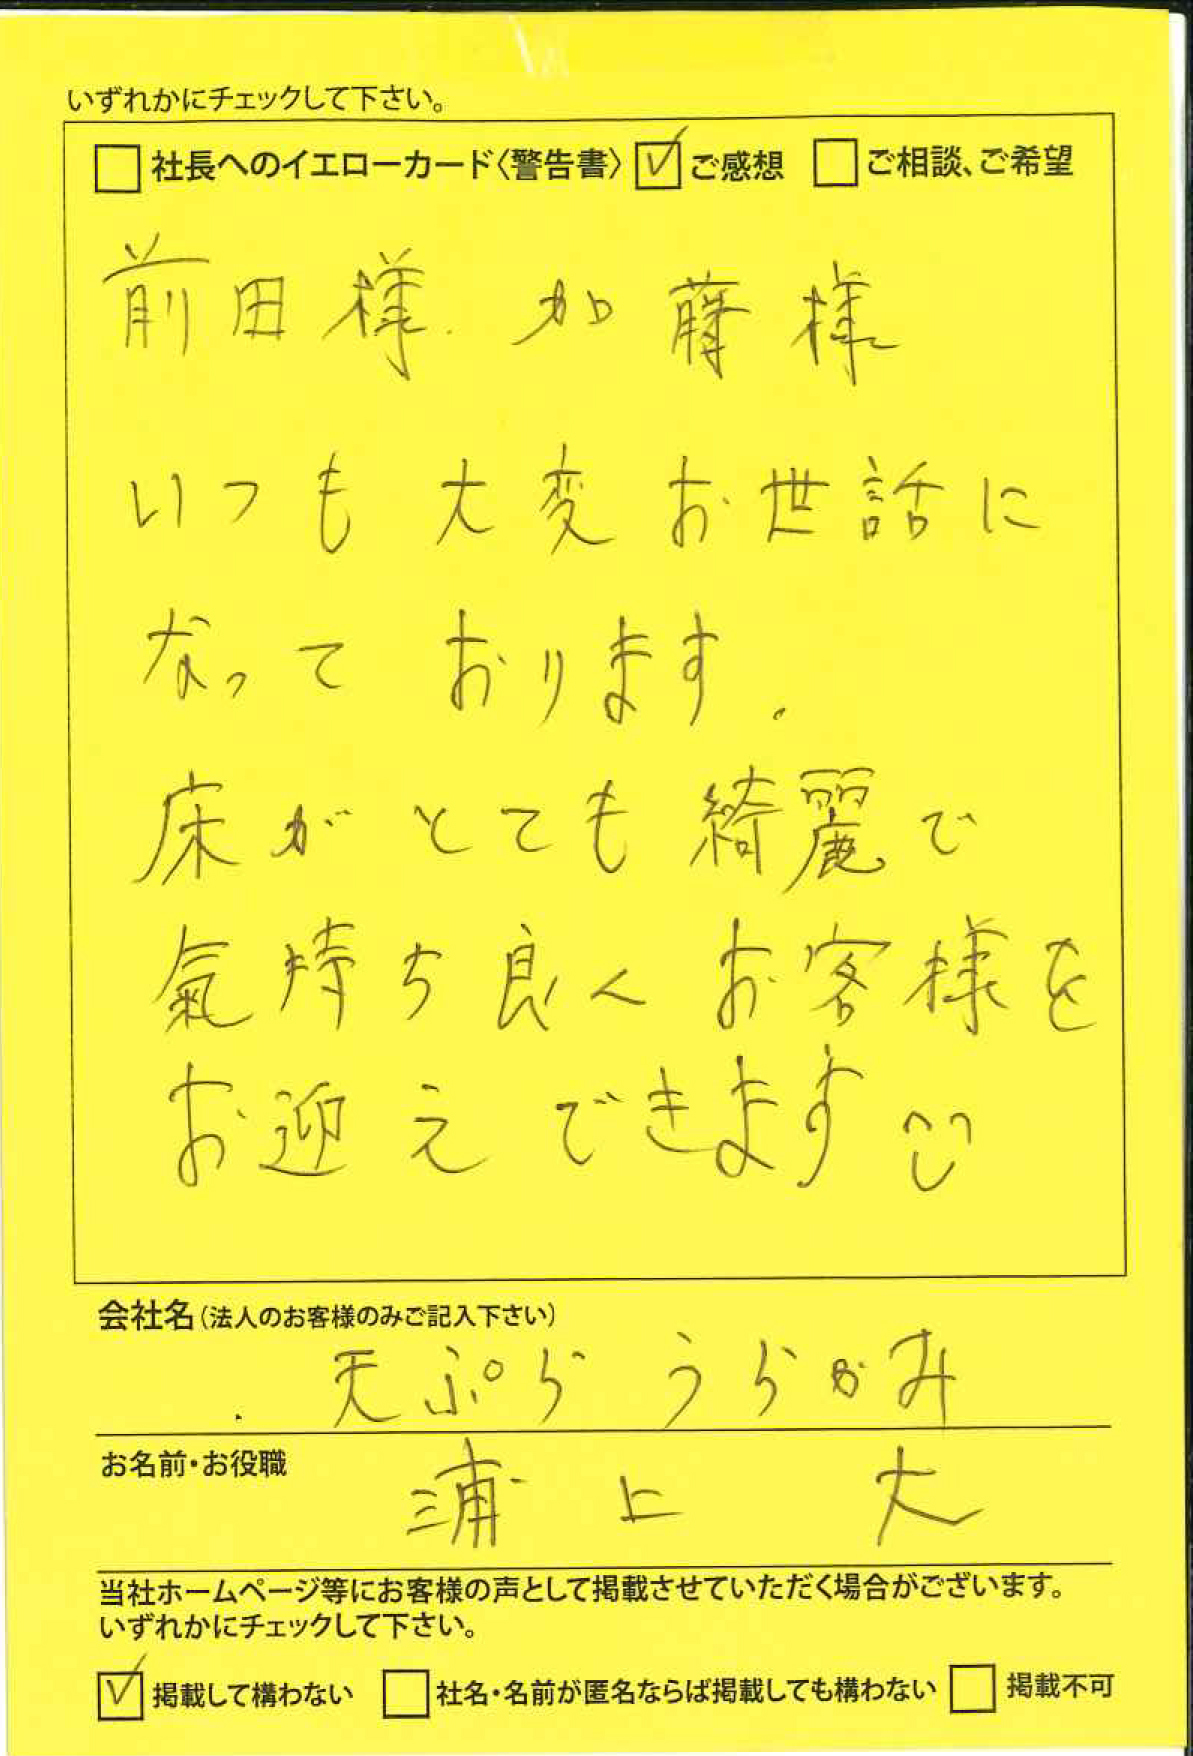 いずれかにチェックして下さい。
□社長へのイエローカード〈警告書〉 ☑ご感想 □ご相談、ご希望
前田様. 加藤様
いつも大変お世話に
なっております。
床がとても綺麗で
氣持ち良くお客様を
お迎えできます
会社名(法人のお客様のみご記入下さい)
天ぷら うらかみ
お名前・お役職
浦上 大
当社ホームページ等にお客様の声として掲載させていただく場合がございます。
いずれかにチェックして下さい。
☑掲載して構わない □社名・名前が匿名ならば掲載しても構わない □掲載不可